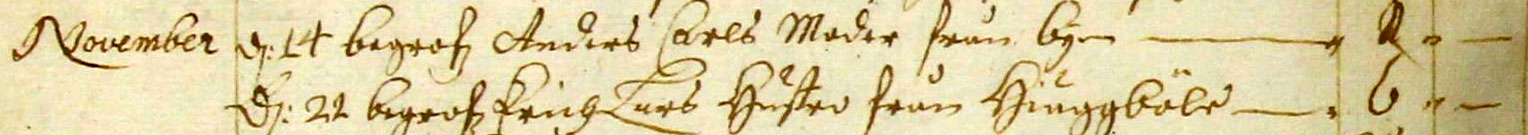 November d: 14 begrofz Anders Carls Moder frun byn — 2 " —
D: 22 begrofz Erich Lars Hustro frun Hiuggböle — 6 " —